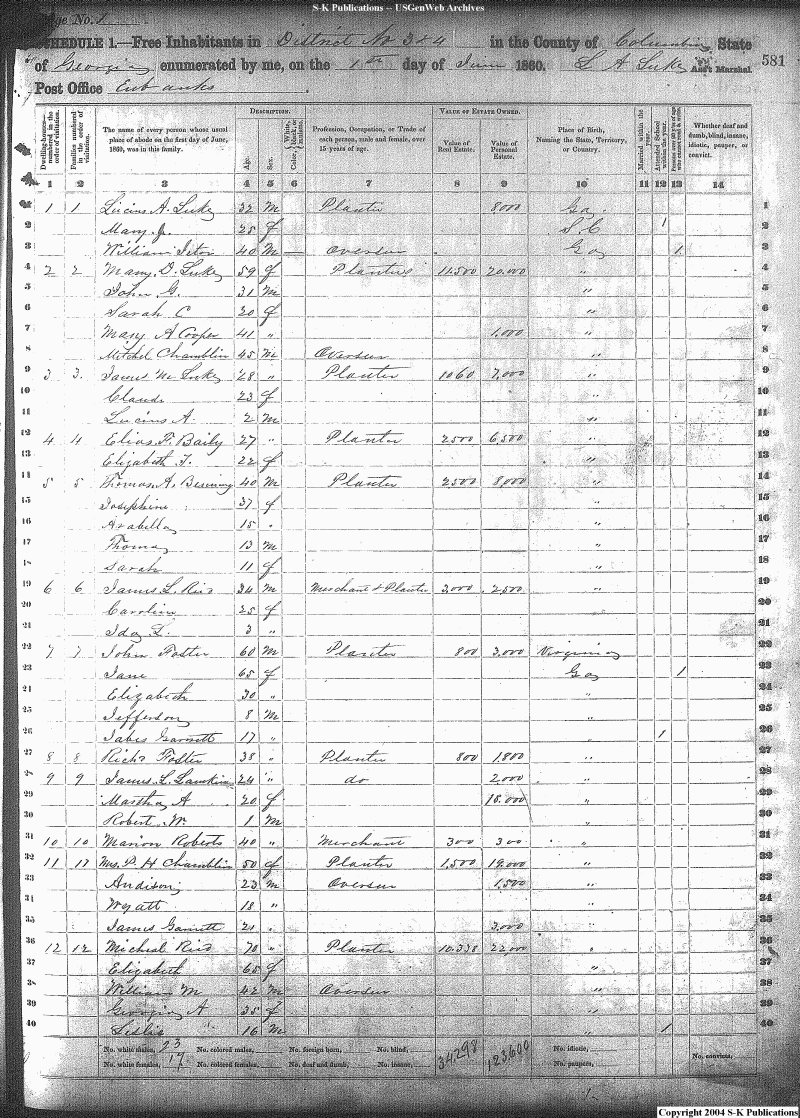 S-K Publications -- USGenWeb Archives
Page No. 1
SCHEDULE 1.—Free Inhabitants in District No 3 & 4 in the County of Columbia State
of Georgia enumerated by me, on the 1st day of June 1860. L A Luke Ass't Marshal. 581
Post Office Eubanks
Dwelling-houses—numbered in the order of visitation.
Families numbered in the order of visitation.
The name of every person whose usual place of abode on the first day of June, 1860, was in this family.
DESCRIPTION.
Age.
Sex.
White, Color, black, or mulatto.
Profession, Occupation, or Trade of each person, male and female, over 15 years of age.
VALUE OF ESTATE OWNED.
Value of Real Estate.
Value of Personal Estate.
Place of Birth, Naming the State, Territory, or Country.
Married within the year.
Attended School within the year.
Persons over 20 y'rs of age who cannot read & write.
Whether deaf and dumb, blind, insane, idiotic, pauper, or convict.
1 2 3 4 5 6 7 8 9 10 11 12 13 14
1 1 Lucius A. Luke 32 M Planter 8,000 Ga. 1
2 Mary J. 25 f S C 1 2
3 William 40 M — Overseer Ga 1 3
4 2 2 Mary D. Luke 59 f Planters 11,500 20,000 " 4
5 John G. 31 M 5
6 Sarah C 20 f " 6
7 Mary A Cooper 41 " 1,000 " 7
8 Mitchel Chamblin 45 M Overseer " 8
9 3 3. James M Luke 28 " Planter 1060 7,000 " 9
10 Claude 23 f " 10
11 Lucius A. 2 M " 11
12 4 4 Elias F. Baily 27 " Planter 2500 6,500 " 12
13 Elizabeth T. 22 f " 13
14 5 5 Thomas A. 40 M Planter 2500 8,000 " 14
15 Josephine 37 f " 15
16 Arabella 15 " " 16
17 Thomas 13 M " 17
18 Sarah 11 f " 18
19 6 6 James L. Rees 34 M Merchant & Planter 3,000 2,500 " 19
20 Caroline 25 f " 20
21 Ida L. 3 " 21
22 7 7 John Foster 60 M Planter 800 3,000 Virginia 22
23 Jane 65 f Ga 1 23
24 Elizabeth 30 " " 24
25 Jefferson 8 M " 25
26 Jabes Garnett 17 " " 1 26
27 8 8 Richd Foster 38 " Planter 800 1,800 " 27
28 9 9 James L. Lamkin 24 " do 2,000 " 28
29 Martha A 20 f 18,000 " 29
30 Robert W. 1 M " 30
31 10 10 Marion Roberts 40 " Merchant 300 300 " 31
32 11 11 Mrs. P. H Chamblin 50 f Planter 1,500 19,000 " 32
33 Andison 23 M Overseer 1,500 " 33
34 Wyatt 18 " " 34
35 James Garnett 21 " 3,000 " 35
36 12 12 Micheal Rees 70 " Planter 10,338 22,000 " 36
37 Elizabeth 65 f " 37
38 William M 42 M Overseer " 38
39 Georgia A 35 f " 39
40 Leslie 16 M 1 40
No. white males, 23 No. colored males, No. foreign born, No. blind, 34,298 123,600 No. idiotic,
No. white females, 17 No. colored females, No. deaf and dumb, No. insane, No. paupers, No. convicts,
Copyright 2004 S-K Publications